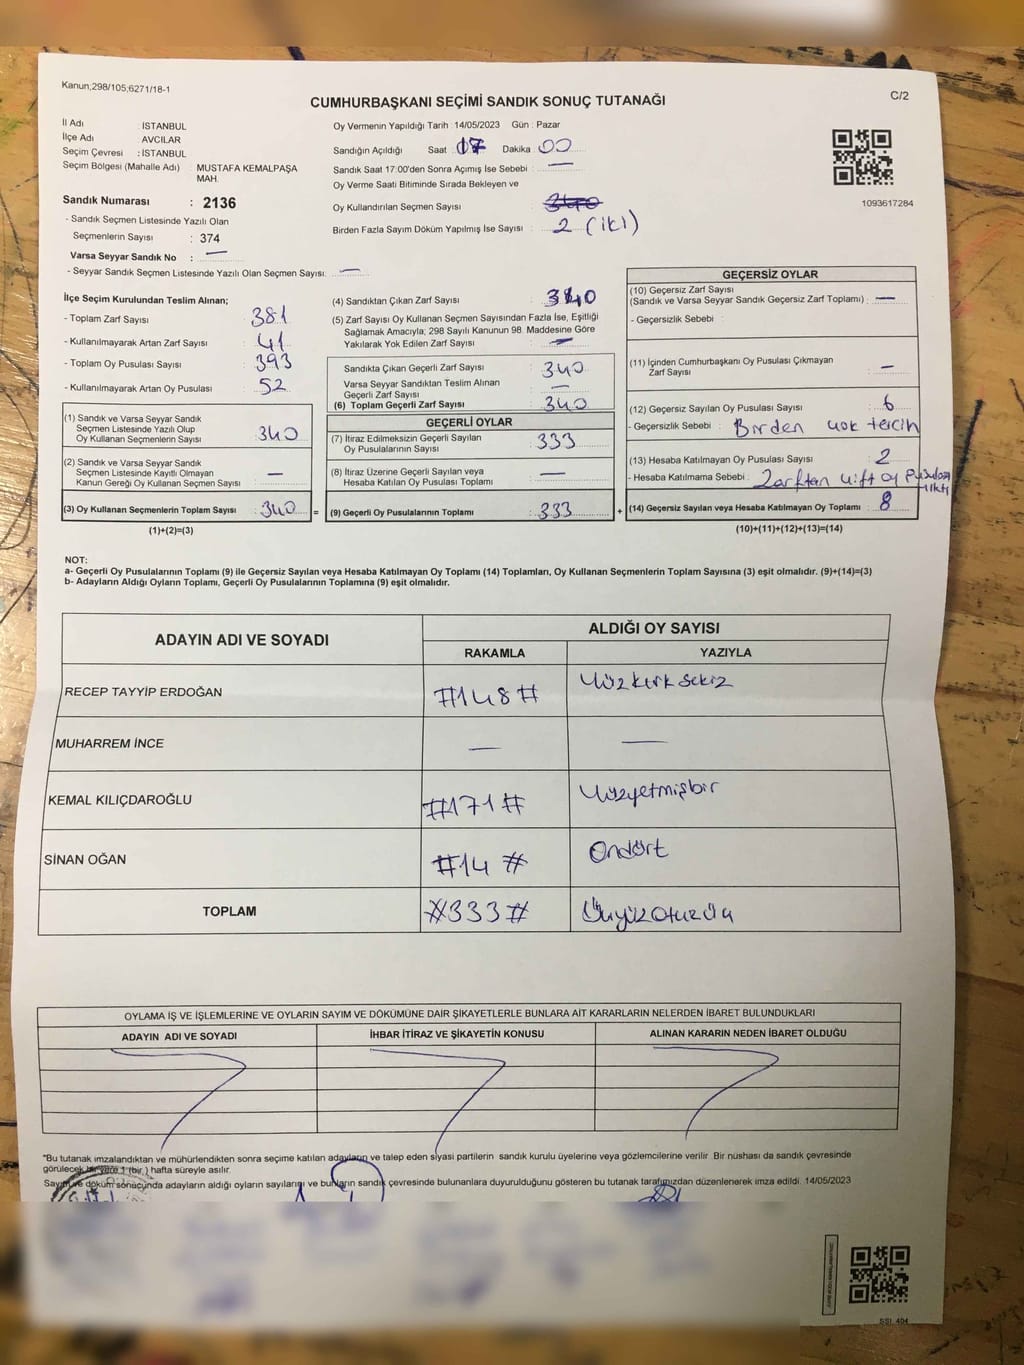 Kanun;298/105;6271/18-1
CUMHURBAŞKANI SEÇİMİ SANDIK SONUÇ TUTANAĞI
C/2
İl Adı : İSTANBUL
İlçe Adı : AVCILAR
Seçim Çevresi : İSTANBUL
Seçim Bölgesi (Mahalle Adı) : MUSTAFA KEMALPAŞA
MAH.
Sandık Numarası : 2136
- Sandık Seçmen Listesinde Yazılı Olan
Seçmenlerin Sayısı : 374
Varsa Seyyar Sandık No : —
- Seyyar Sandık Seçmen Listesinde Yazılı Olan Seçmen Sayısı: —
Oy Vermenin Yapıldığı Tarih : 14/05/2023 Gün : Pazar
Sandığın Açıldığı Saat : 17 Dakika : 00
Sandık Saat 17:00'den Sonra Açımış İse Sebebi : —
Oy Verme Saati Bitiminde Sırada Bekleyen ve
Oy Kullandırılan Seçmen Sayısı : 340
Birden Fazla Sayım Döküm Yapılmış İse Sayısı : 2 (iki)
1093617284
İlçe Seçim Kurulundan Teslim Alınan;
- Toplam Zarf Sayısı : 381
- Kullanılmayarak Artan Zarf Sayısı : 41
- Toplam Oy Pusulası Sayısı : 393
- Kullanılmayarak Artan Oy Pusulası : 52
(1) Sandık ve Varsa Seyyar Sandık
Seçmen Listesinde Yazılı Olup
Oy Kullanan Seçmenlerin Sayısı : 340
(2) Sandık ve Varsa Seyyar Sandık
Seçmen Listesinde Kayıtlı Olmayan
Kanun Gereği Oy Kullanan Seçmen Sayısı : —
(3) Oy Kullanan Seçmenlerin Toplam Sayısı : 340 =
(1)+(2)=(3)
(4) Sandıktan Çıkan Zarf Sayısı : 340
(5) Zarf Sayısı Oy Kullanan Seçmen Sayısından Fazla İse, Eşitliği
Sağlamak Amacıyla; 298 Sayılı Kanunun 98. Maddesine Göre
Yakılarak Yok Edilen Zarf Sayısı : —
Sandıkta Çıkan Geçerli Zarf Sayısı : 340
Varsa Seyyar Sandıktan Teslim Alınan
Geçerli Zarf Sayısı : —
(6) Toplam Geçerli Zarf Sayısı : 340
GEÇERLİ OYLAR
(7) İtiraz Edilmeksizin Geçerli Sayılan
Oy Pusulalarının Sayısı : 333
(8) İtiraz Üzerine Geçerli Sayılan veya
Hesaba Katılan Oy Pusulası Toplamı : —
(9) Geçerli Oy Pusulalarının Toplamı : 333 +
GEÇERSİZ OYLAR
(10) Geçersiz Zarf Sayısı
(Sandık ve Varsa Seyyar Sandık Geçersiz Zarf Toplamı) : —
- Geçersizlik Sebebi :
(11) İçinden Cumhurbaşkanı Oy Pusulası Çıkmayan
Zarf Sayısı : —
(12) Geçersiz Sayılan Oy Pusulası Sayısı : 6
- Geçersizlik Sebebi : Birden çok tercih
(13) Hesaba Katılmayan Oy Pusulası Sayısı : 2
- Hesaba Katılmama Sebebi : Zarftan çift oy pusulası
çıktı
(14) Geçersiz Sayılan veya Hesaba Katılmayan Oy Toplamı : 8
(10)+(11)+(12)+(13)=(14)
NOT:
a- Geçerli Oy Pusulalarının Toplamı (9) ile Geçersiz Sayılan veya Hesaba Katılmayan Oy Toplamı (14) Toplamları, Oy Kullanan Seçmenlerin Toplam Sayısına (3) eşit olmalıdır. (9)+(14)=(3)
b- Adayların Aldığı Oyların Toplamı, Geçerli Oy Pusulalarının Toplamına (9) eşit olmalıdır.
ADAYIN ADI VE SOYADI
ALDIĞI OY SAYISI
RAKAMLA YAZIYLA
RECEP TAYYİP ERDOĞAN #148# Yüzkırksekiz
MUHARREM İNCE — —
KEMAL KILIÇDAROĞLU #171# Yüzyetmişbir
SİNAN OĞAN #14# Ondört
TOPLAM #333# Üçyüzotuzüç
OYLAMA İŞ VE İŞLEMLERİNE VE OYLARIN SAYIM VE DÖKÜMÜNE DAİR ŞİKAYETLERLE BUNLARA AİT KARARLARIN NELERDEN İBARET BULUNDUKLARI
ADAYIN ADI VE SOYADI İHBAR İTİRAZ VE ŞİKAYETİN KONUSU ALINAN KARARIN NEDEN İBARET OLDUĞU
"Bu tutanak imzalandıktan ve mühürlendikten sonra seçime katılan adayların ve talep eden siyasi partilerin sandık kurulu üyelerine veya gözlemcilerine verilir. Bir nushası da sandık çevresinde
görülecek bir yere 1 (bir ) hafta süreyle asılır.
Sayım ve döküm sonucunda adayların aldığı oyların sayılarını ve bunların sandık çevresinde bulunanlara duyurulduğunu gösteren bu tutanak tarafımızdan düzenlenerek imza edildi. 14/05/2023
SSI_404